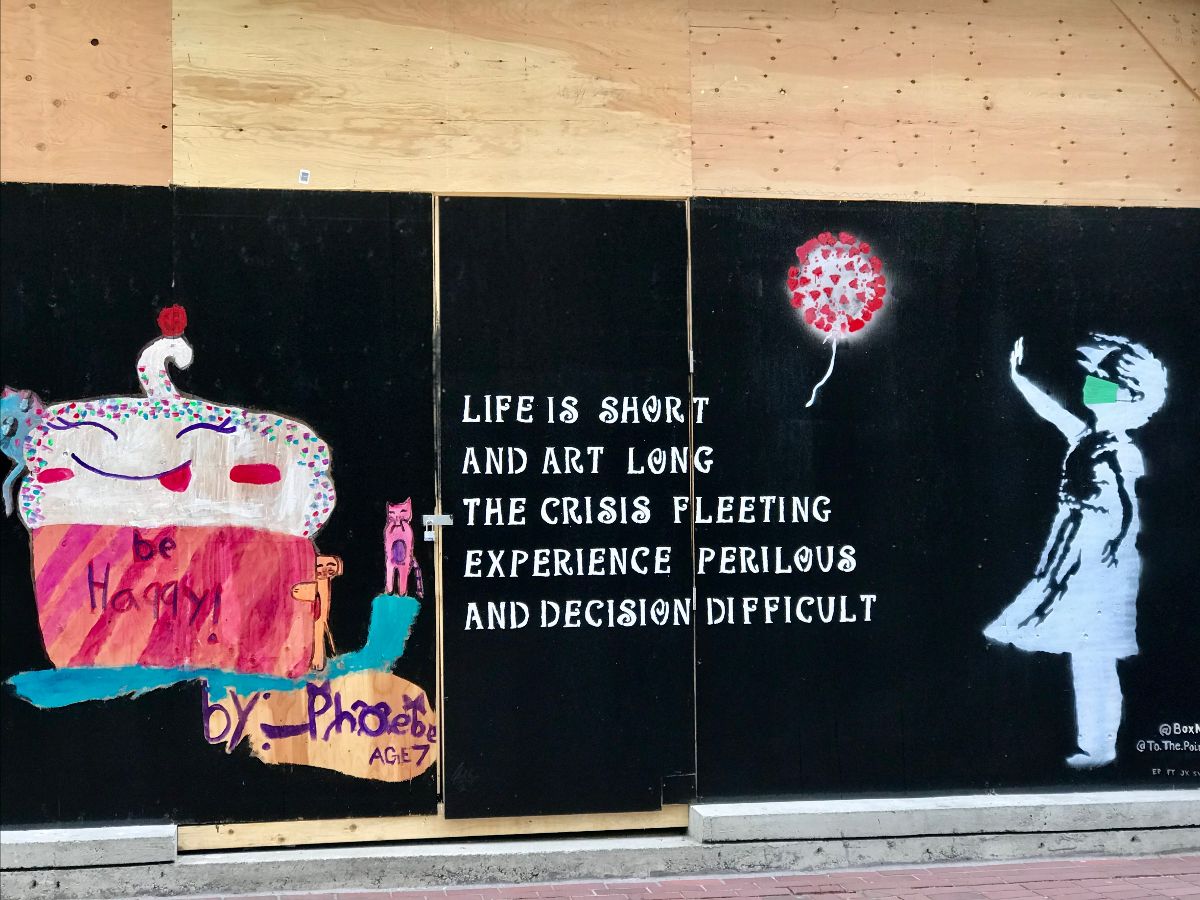 be
Haqqy!
by: Phoebe
AGE 7
LIFE IS SHORT
AND ART LONG
THE CRISIS FLEETING
EXPERIENCE PERILOUS
AND DECISION DIFFICULT
@Box
@To.The.Poi
EP FT JK